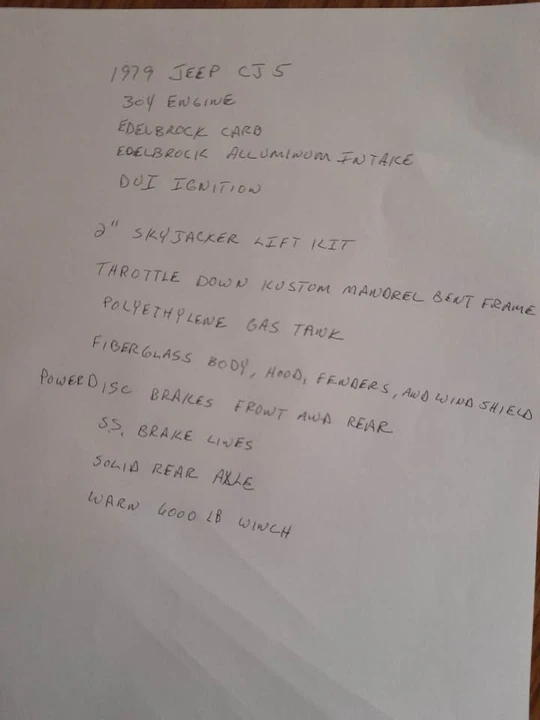 1979 JEEP CJ5
304 ENGINE
EDELBROCK CARB
EDELBROCK ALLUMINUM INTAKE
DUI IGNITION
2" SKYJACKER LIFT KIT
THROTTLE DOWN KUSTOM MANDREL BENT FRAME
POLYETHYLENE GAS TANK
FIBERGLASS BODY, HOOD, FENDERS, AND WIND SHIELD
POWER DISC BRAKES FRONT AND REAR
S.S. BRAKE LINES
SOLID REAR AXLE
WARN 6000 LB WINCH